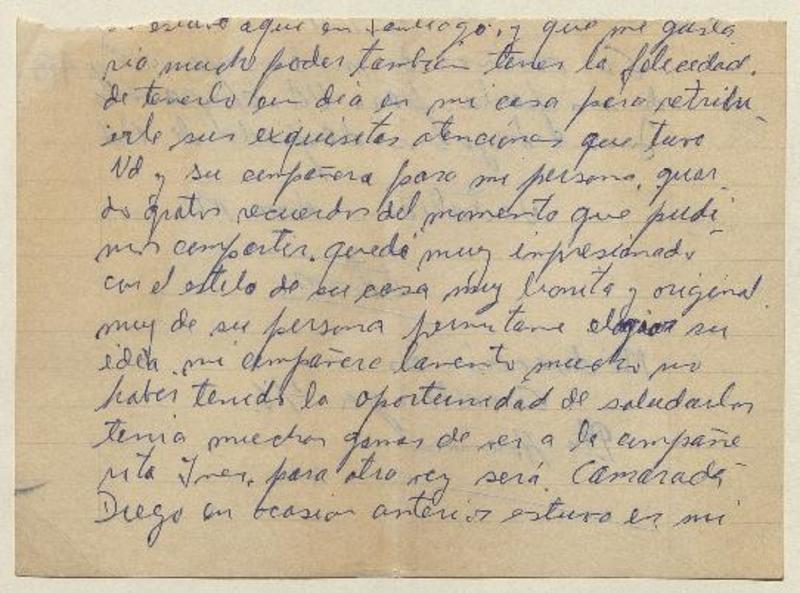 estuvo aqui en Santiago, y que me gusta
ria mucho poder tambien tener la felecedad.
de tenerlo un dia en mi casa para retribu-
irle sus exquisitas atenciones que tuvo
Vd y su compañera para mi persona, guar
do gratos recuerdos del momento que pudi-
mos compartir. quedé muy impresionado
con el estilo de su casa muy bonita y original
muy de su persona permitame elogiar su
idea. mi compañera lamento mucho no
haber tenido la oportunidad de saludarlos
tenia muchas ganas de ver a la compañe
rita Ines, para otra vez será. Camarada
Diego en ocasion anterior estuvo en mi